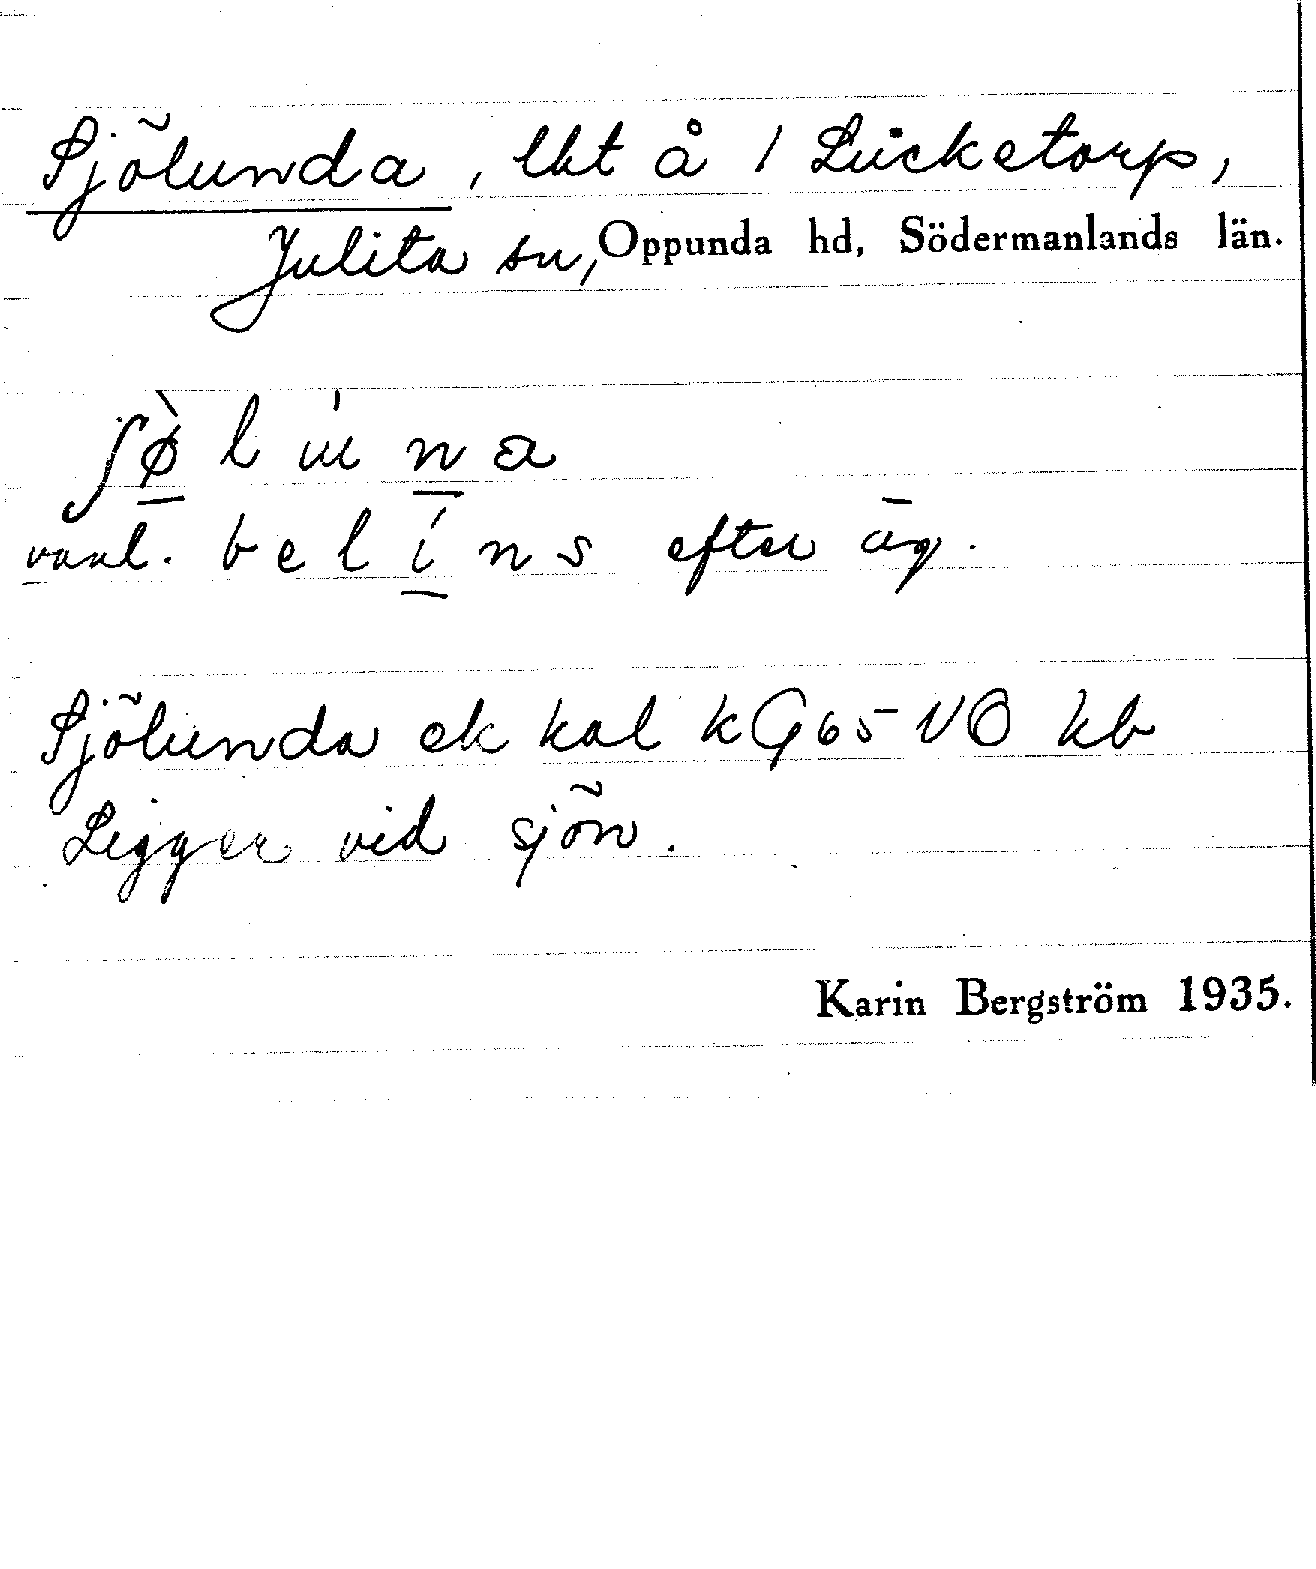 Sjölunda, lht å 1 Lücketorp,
Julita sn, Oppunda hd, Södermanlands län.
ʃø̀luna
vanl. belíns efter äg.
Sjölunda ek kal kG65NO kb
Ligger vid sjön.
Karin Bergström 1935.